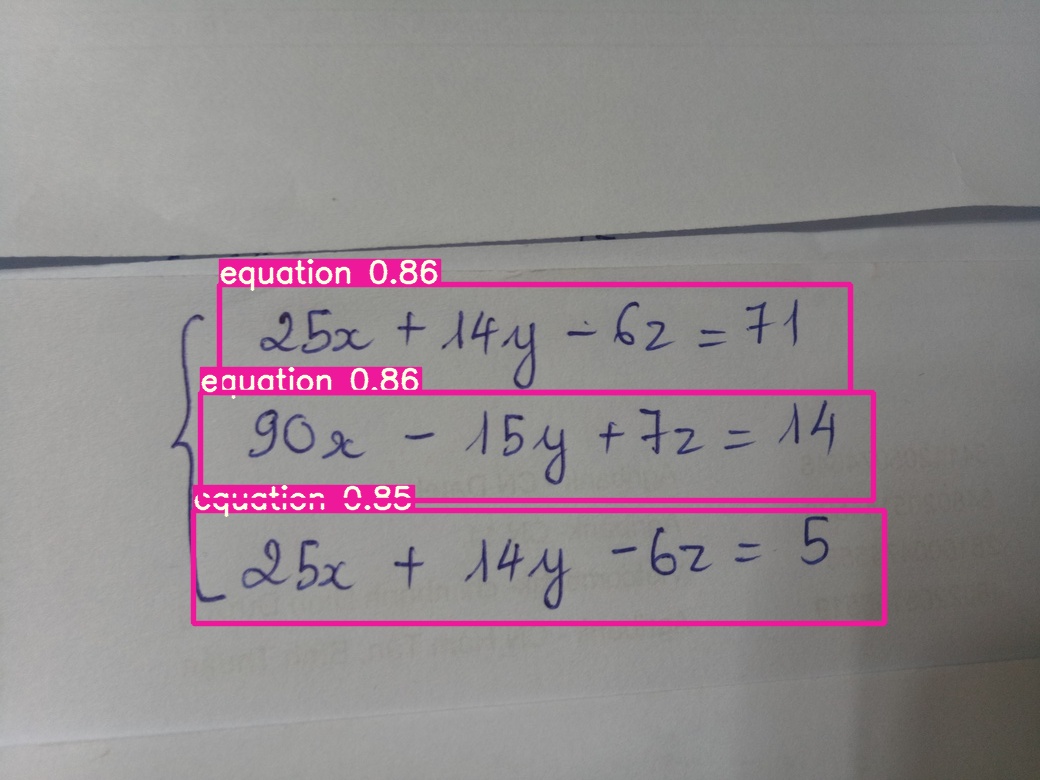 equation 0.86
25x + 14y - 6z = 71
equation 0.86
90x - 15y + 7z = 14
equation 0.85
25x + 14y - 6z = 5